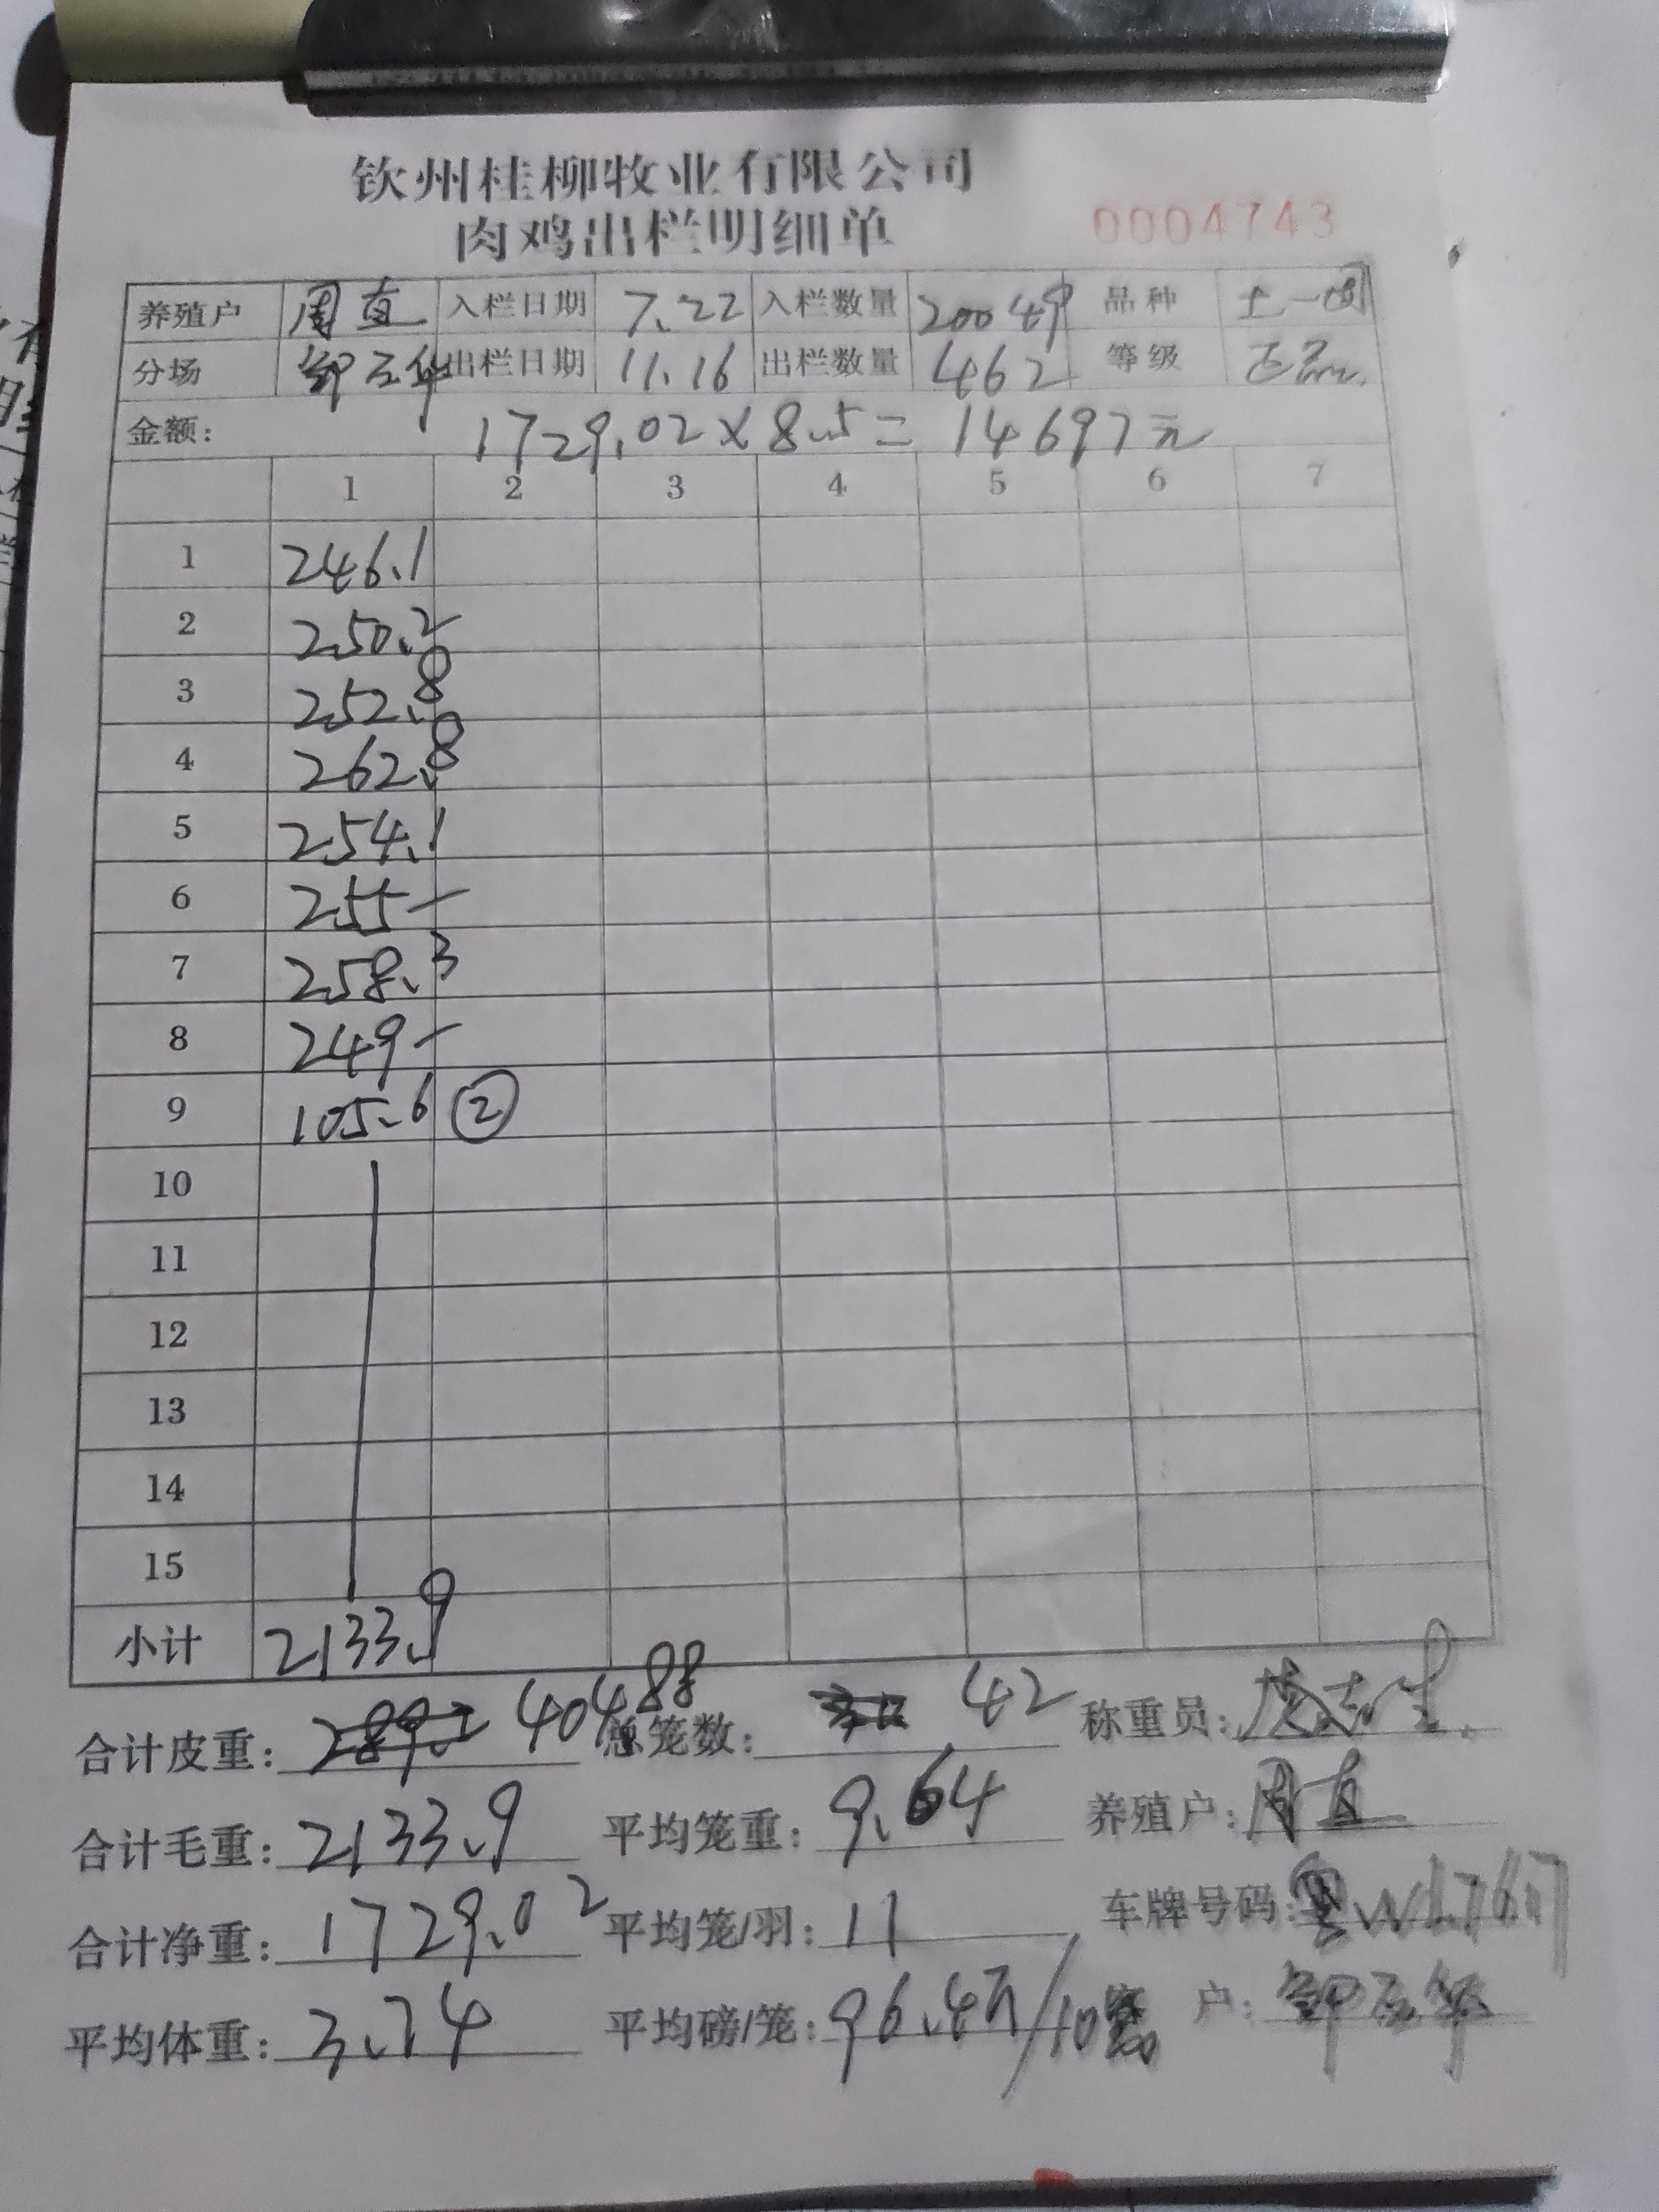 钦州桂柳牧业有限公司
肉鸡出栏明细单 0004743
养殖户 周直 入栏日期 7.22 入栏数量 20049 品种 土一
分场 出栏日期 11.16 出栏数量 462 等级 正品
金额: 1729.02×8.5=14697元
1 2 3 4 5 6 7
1 246.1
2 250.2
3 252.8
4 262.8
5 254.1
6 255-
7 258.3
8 249-
9 105.6 ②
10
11
12
13
14
15
小计 2133.9
合计皮重: 404.88 总笼数: 42 称重员:
合计毛重: 2133.9 平均笼重: 9.64 养殖户: 周直
合计净重: 1729.02 平均笼/羽: 11 车牌号码: 粤
平均体重: 3.74 平均磅/笼: 96.4斤/10 户: